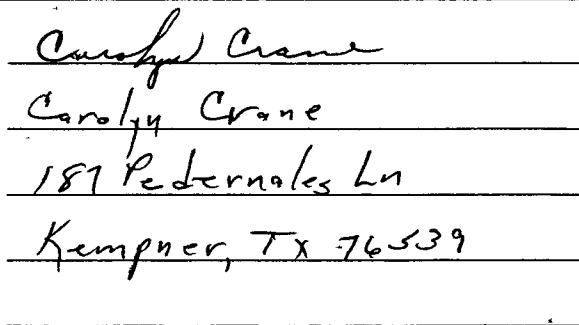 Carolyn Crane
Carolyn Crane
187 Pedernales Ln
Kempner, Tx 76539